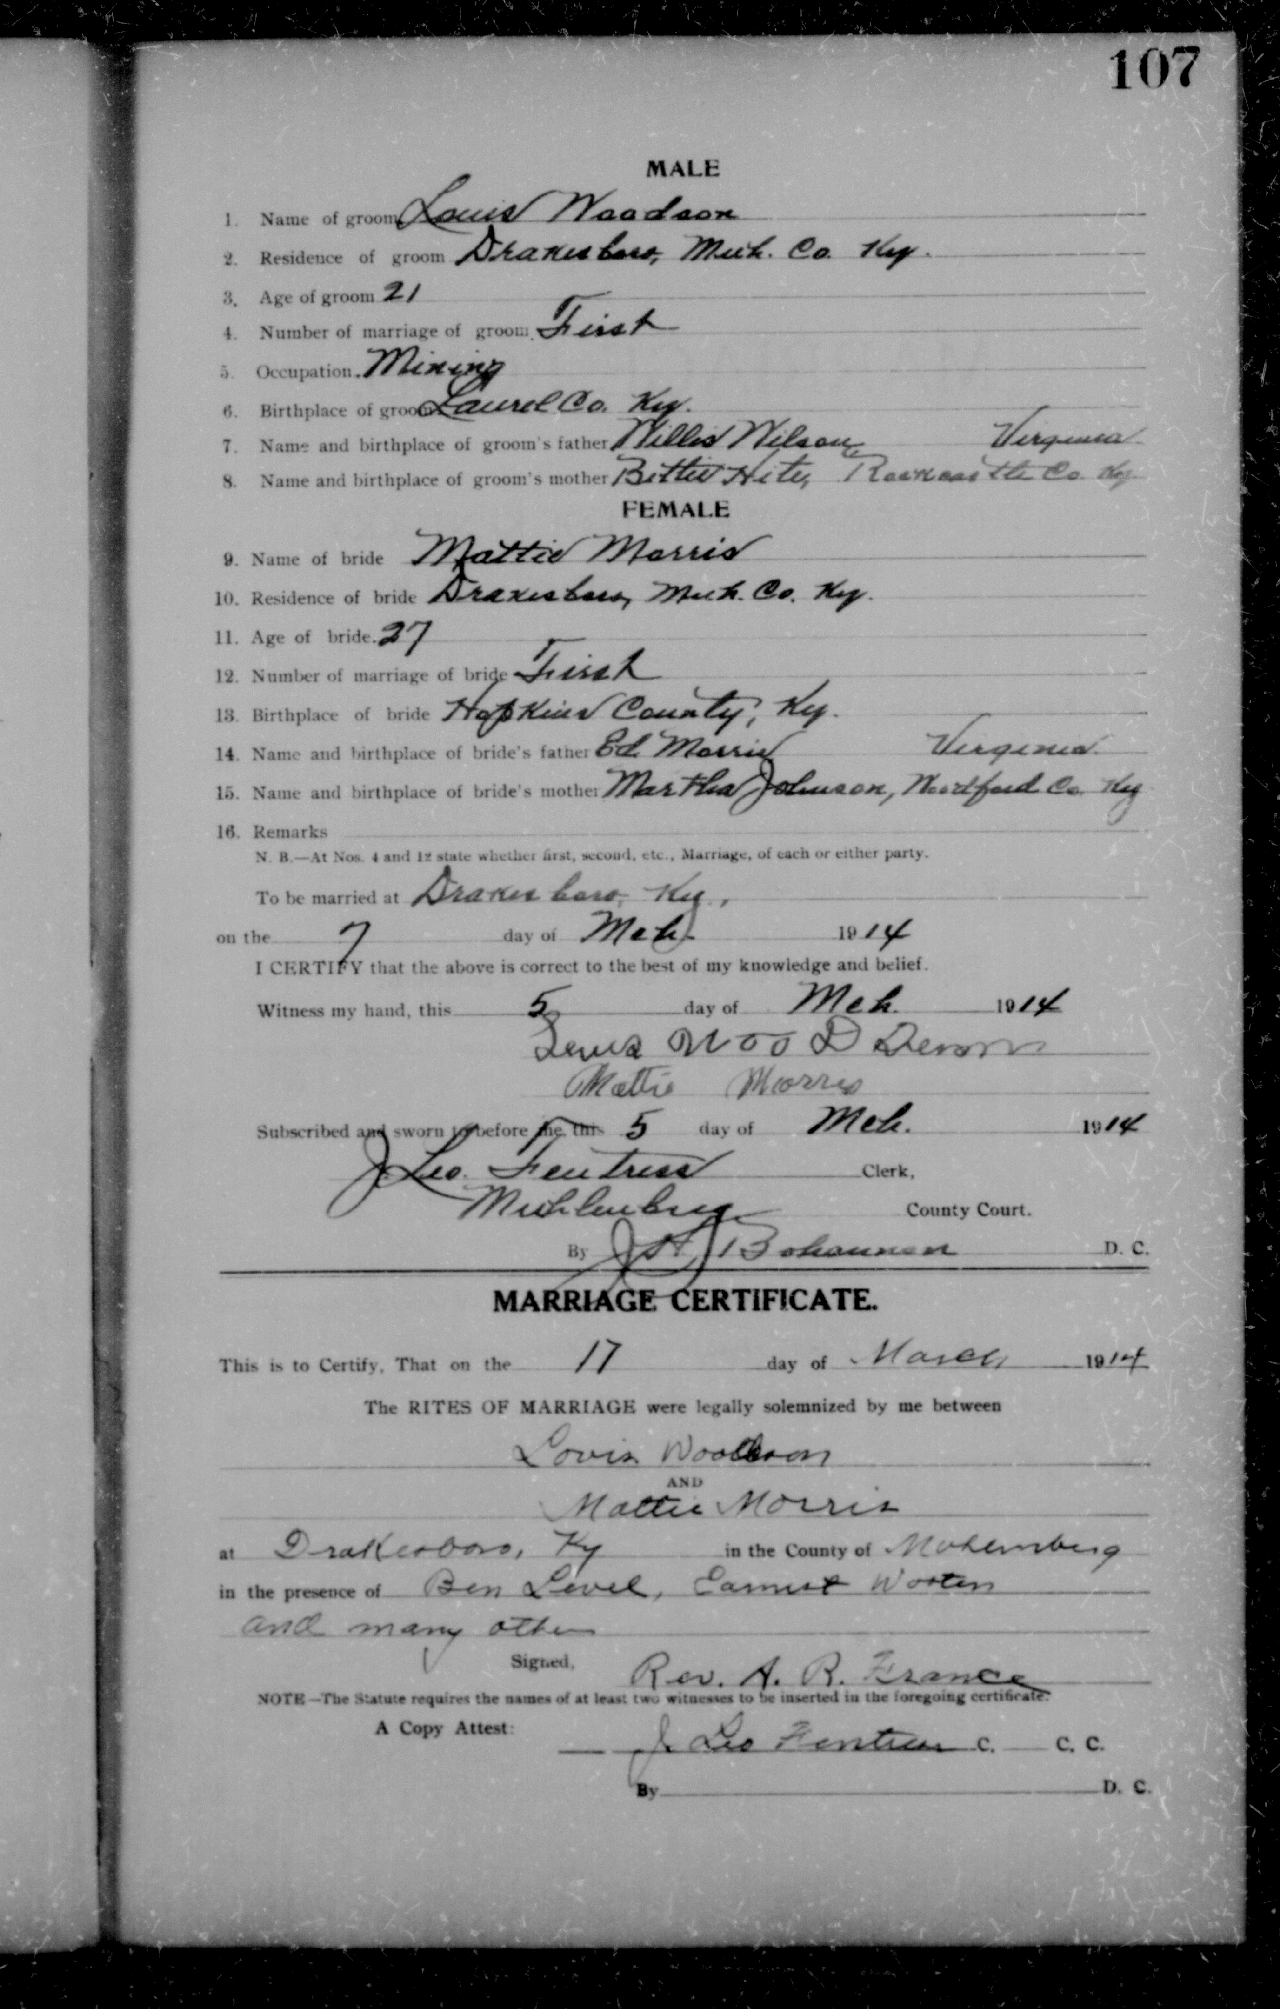 107
MALE
1. Name of groom Louis Woodson
2. Residence of groom Drakesboro, Muh. Co. Ky.
3. Age of groom 21
4. Number of marriage of groom First
5. Occupation. Mining
6. Birthplace of groom Laurel Co. Ky.
7. Name and birthplace of groom's father Willis Wilson, Virginia
8. Name and birthplace of groom's mother Bettie Hite, Rockcastle Co. Ky.
FEMALE
9. Name of bride Mattie Morris
10. Residence of bride Drakesboro, Muh. Co. Ky.
11. Age of bride. 27
12. Number of marriage of bride First
13. Birthplace of bride Hopkins County, Ky.
14. Name and birthplace of bride's father Ed Morris Virginia.
15. Name and birthplace of bride's mother Martha Johnson, Co. Ky
16. Remarks
N. B.—At Nos. 4 and 12 state whether first, second, etc., Marriage, of each or either party.
To be married at Drakesboro, Ky.,
on the 7 day of Mch. 1914
I CERTIFY that the above is correct to the best of my knowledge and belief.
Witness my hand, this 5 day of Mch. 1914
Mattie Morris
Subscribed and sworn to before me, this 5 day of Mch. 1914
J. Leo. Fentress Clerk,
Muhlenberg County Court.
By Bohannon D. C.
MARRIAGE CERTIFICATE.
This is to Certify, That on the 17 day of March 1914
The RITES OF MARRIAGE were legally solemnized by me between
Lovis Woodson
AND
Mattie Morris
at Drakesboro, Ky in the County of Muhlenberg
in the presence of Ben Level, Earnest Wooten
and many other
Signed, Rev. A. R. France
NOTE—The Statute requires the names of at least two witnesses to be inserted in the foregoing certificate.
A Copy Attest:
J. Leo Fentress C. C. C.
By D. C.